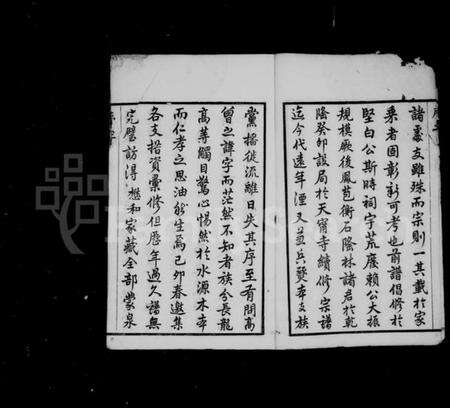 諸處支雖殊而宗則一其載於家
乘者固彰彰可考也前譜倡修於
堅白公斯時祠宇荒廢賴公大振
規模厥後鳳苞衡石蔭林諸君於乾
隆癸卯設局於天甯寺續修宗譜
迄今代遠年湮又益兵燹本支族
黨播徙流離日失其序至有問高
曾之諱字而茫然不知者族分長龍
高蓴觸目驚心惕然於水源木本
而仁孝之思油然生焉己卯春邀集
各支措資彙修但歷年過久譜無
完璧訪得懋和家藏全部蒙泉